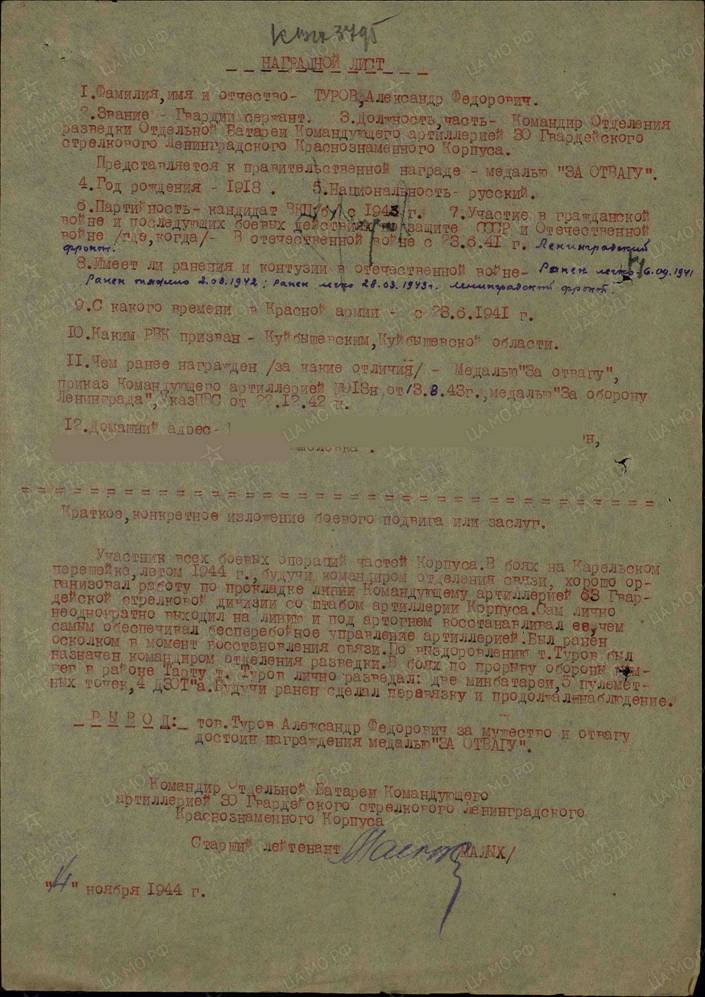 НАГРАДНОЙ ЛИСТ
1.Фамилия,имя и отчество- ТУРОВ,Александр Федорович.
2.Звание - Гвардии сержант. 3.Должность,часть- Командир Отделения
разведки Отдельной Батареи Командующего артиллерией 30 Гвардейского
стрелкового Ленинградского Краснознаменного Корпуса.
Представляется к правительственной награде - медалью "ЗА ОТВАГУ".
4.Год рождения - 1918. 5.Национальность- русский.
6.Партийность- кандидат ВКП/б/ с 1943 г. 7.Участие в гражданской
войне и последующих боевых действиях по защите СССР и Отечественной
войне /где,когда/- В отечественной войне с 23.6.41 г. Ленинградский
фронт.
8.Имеет ли ранения и контузии в отечественной войне- Ранен легко 6.09.1941
Ранен тяжело 2.08.1942; ранен легко 28.03.1943г. Ленинградский фронт.
9.С какого времени в Красной армии - с 23.6.1941 г.
10.Каким РВК призван - Куйбышевским,Куйбышевской области.
11.Чем ранее награжден /за какие отличия/ - Медалью"За отвагу",
приказ Командующего артиллерией №018н от 13.8.43г.,медалью"За оборону
Ленинграда",Указ ПВС от 22.12.42 г.
12.Домашний адрес-
н,
Краткое,конкретное изложение боевого подвига или заслуг.
Участник всех боевых операций частей Корпуса.В боях на Карельском
перешейке,летом 1944 г.,будучи командиром отделения связи, хорошо ор-
ганизовал работу по прокладке линии Командующему артиллерией 63 Гвар-
дейской стрелковой дивизии со штабом артиллерии Корпуса.Сам лично
неоднократно выходил на линию и под артогнем восстанавливал ее,чем
самым обеспечивал бесперебойное управление артиллерией.Был ранен
осколком в момент восстановления связи.По выздоровлению т.Туров был
назначен командиром отделения разведки.В боях по прорыву обороны нем-
цев в районе Тарту т. Туров лично разведал: две минбатареи,5 пулемет-
ных точек,4 ДЗОТ"а.Будучи ранен сделал перевязку и продолжал наблюдение.
В Ы В О Д: тов.Туров Александр Федорович за мужество и отвагу
достоин награждения медалью"ЗА ОТВАГУ".
Командир Отдельной Батареи Командующего
артиллерией 30 Гвардейского стрелкового Ленинградского
Краснознаменного Корпуса
Старший лейтенант /МАЛЫХ/
"14" ноября 1944 г.